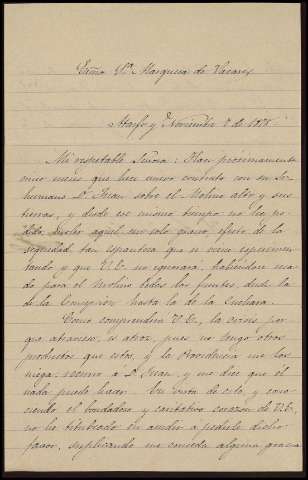 Exma Sra Marquesa de
Atarfe y Noviembre 8 de 1878.
Mi respetable Señora: Hace próximamente
nueve meses que hice nuevo contrato con su Sr
hermano D. Juan sobre el Molino alto y sus
tierras, y desde ese mismo tiempo no ha po-
dido moler aquel un solo grano, efecto de la
sequedad tan espantosa que se viene experimen-
tando y que V.E. no ignorará, habiéndose
do para el Molino todas las fuentes, desde la
de la Concepción hasta la de la
Como comprenderá V.E., la crisis por-
que atravieso es atroz, pues no tengo otros
productos que estos, y la Providencia me los
niega: recurro a D. Juan, y me dice que él
nada puede hacer. En vista de esto, y cono-
ciendo el bondadoso y caritativo corazón de V.E.,
no he titubeado en acudir a pedirle dicho
favor, suplicando me conceda alguna gracia